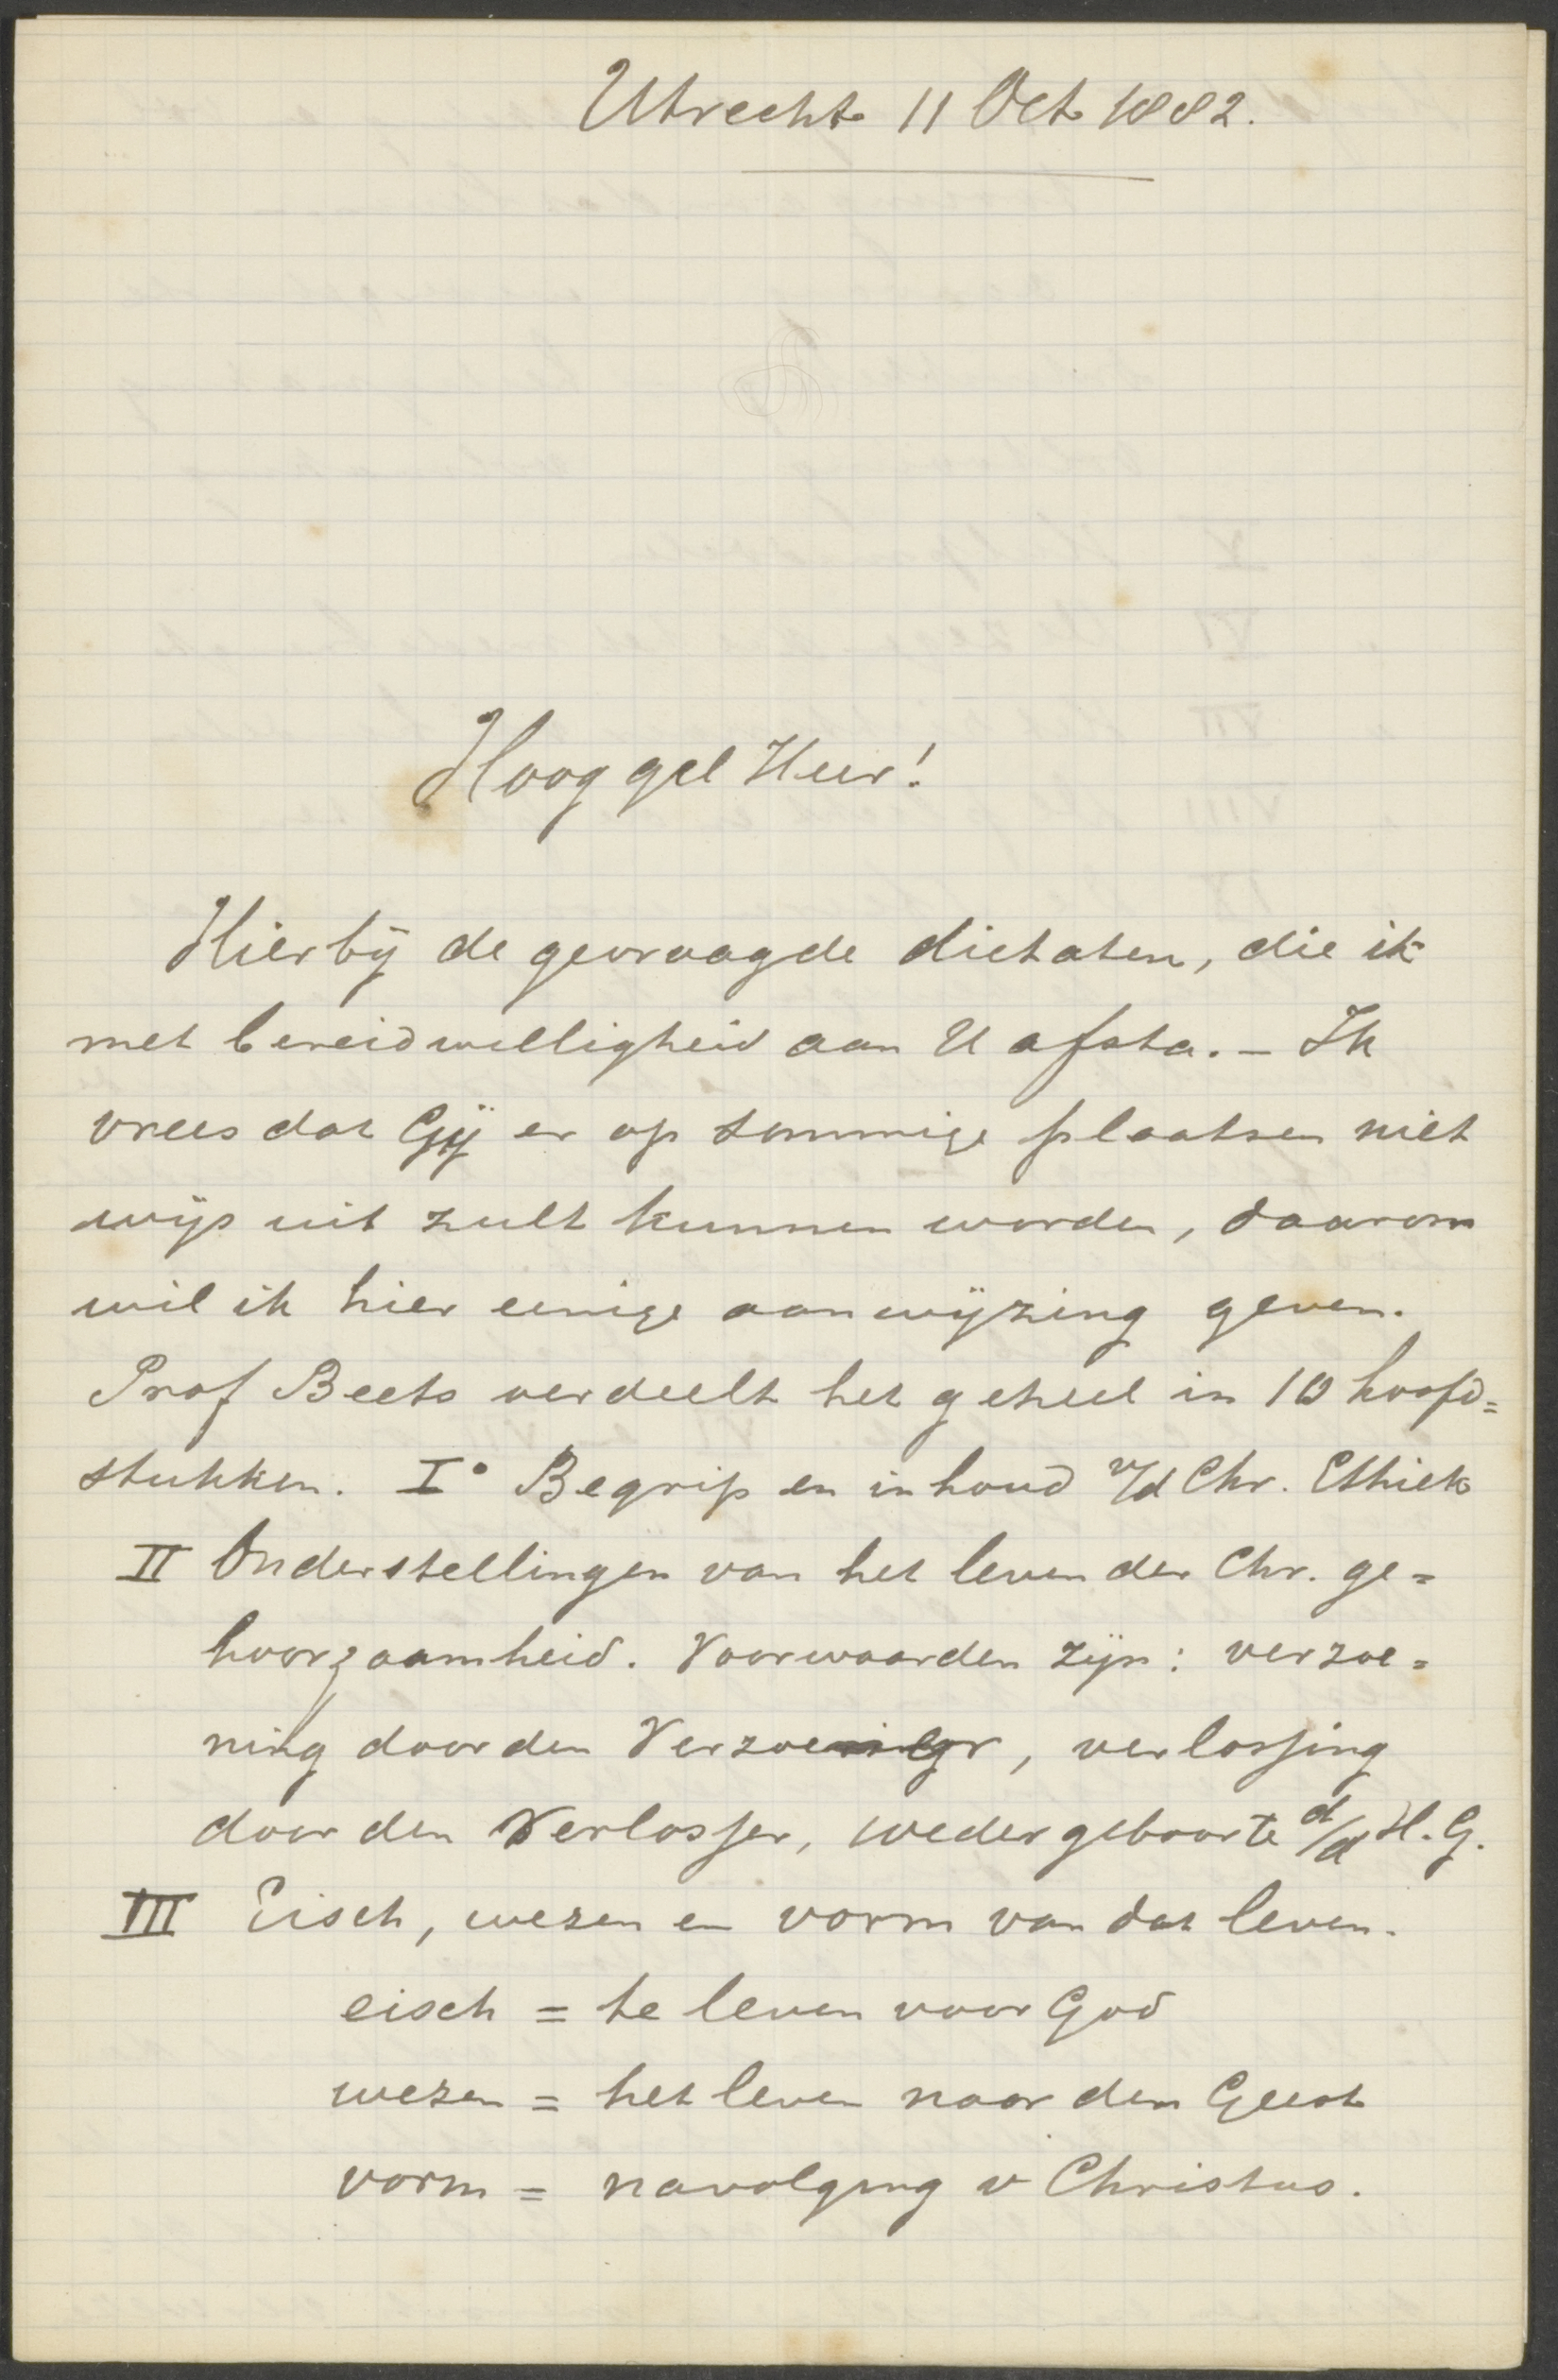 Utrecht 11 Oct 1882.
Hooggel Heer!
Hierbij de gevraagde dictaten, die ik
met bereidwilligheid aan U afsta. – Ik
vrees dat Gij er op sommige plaatsen niet
wijs uit zult kunnen worden, daarom
wil ik hier eenige aanwijzing geven.
Prof Beets verdeelt het geheel in 10 hoofd=
stukken. I° Begrip en inhoud v/d Chr. Ethiek
II Onderstellingen van het leven der Chr. ge=
hoorzaamheid. Voorwaarden zijn: verzoe=
ning door den Verzoener, verlossing
door den Verlosser, wedergeboorte d/d H. G.
III Eisch, wezen en vorm van dat leven.
eisch = te leven voor God
wezen = het leven naar den Geest
vorm = navolging v Christus.